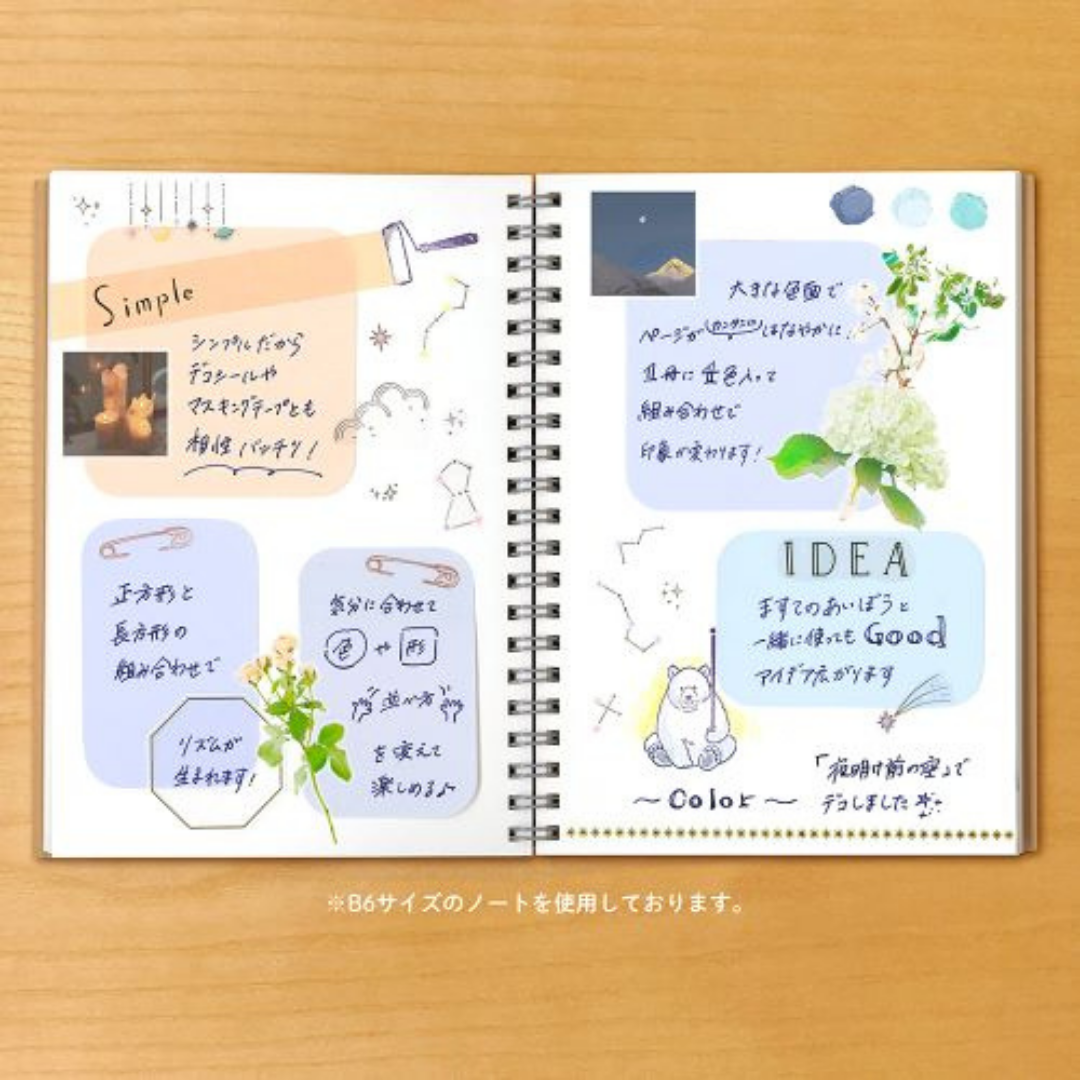 Simple
シンプルだから
デコシールや
マスキングテープとも
相性バッチリ!
正方形と
長方形の
組み合わせで
リズムが
生まれます!
気分に合わせて
色 や 形
並べ方
を変えて
楽しめる♪
大きな色面で
ページがカンタンにはなやかに!
1冊に全色入って
組み合わせで
印象が変わります!
IDEA
ますてのあいぼうと
一緒に使っても Good
アイデア広がります
~Color~
「夜明け前の空」で
デコしました
※B6サイズのノートを使用しております。